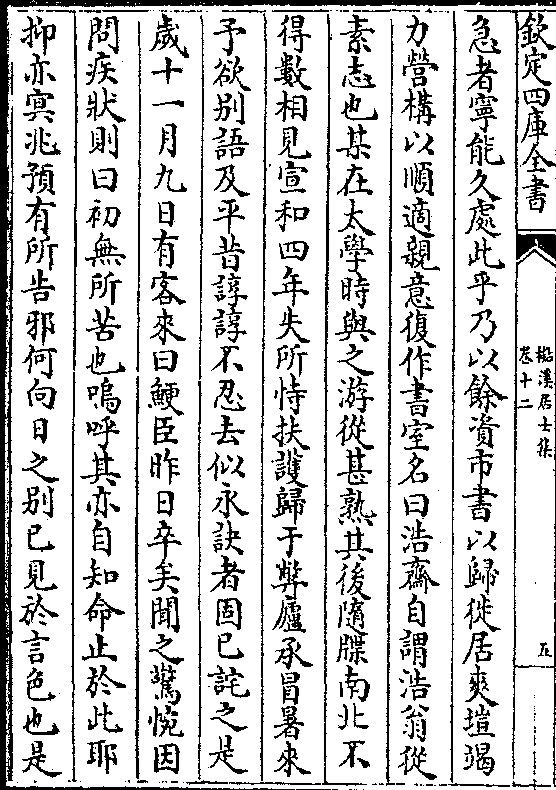 欽定四庫全書
檆溪居士集
卷十二
五
急者寧能久處此乎乃以餘資市書以歸徙居爽塏竭
力營構以順適親意復作書室名曰浩齋自謂浩翁從
素志也某在太學時與之游從甚熟其後隨牒南北不
得數相見宣和四年失所恃扶護歸于弊廬承冒暑來
予欲别語及平昔諄諄不忍去似永訣者固已詫之是
歲十一月九日有客來曰鯁臣昨日卒矣聞之驚惋因
問疾狀則曰初無所苦也嗚呼其亦自知命止於此耶
抑亦冥兆預有所告邪何向日之别已見於言色也是